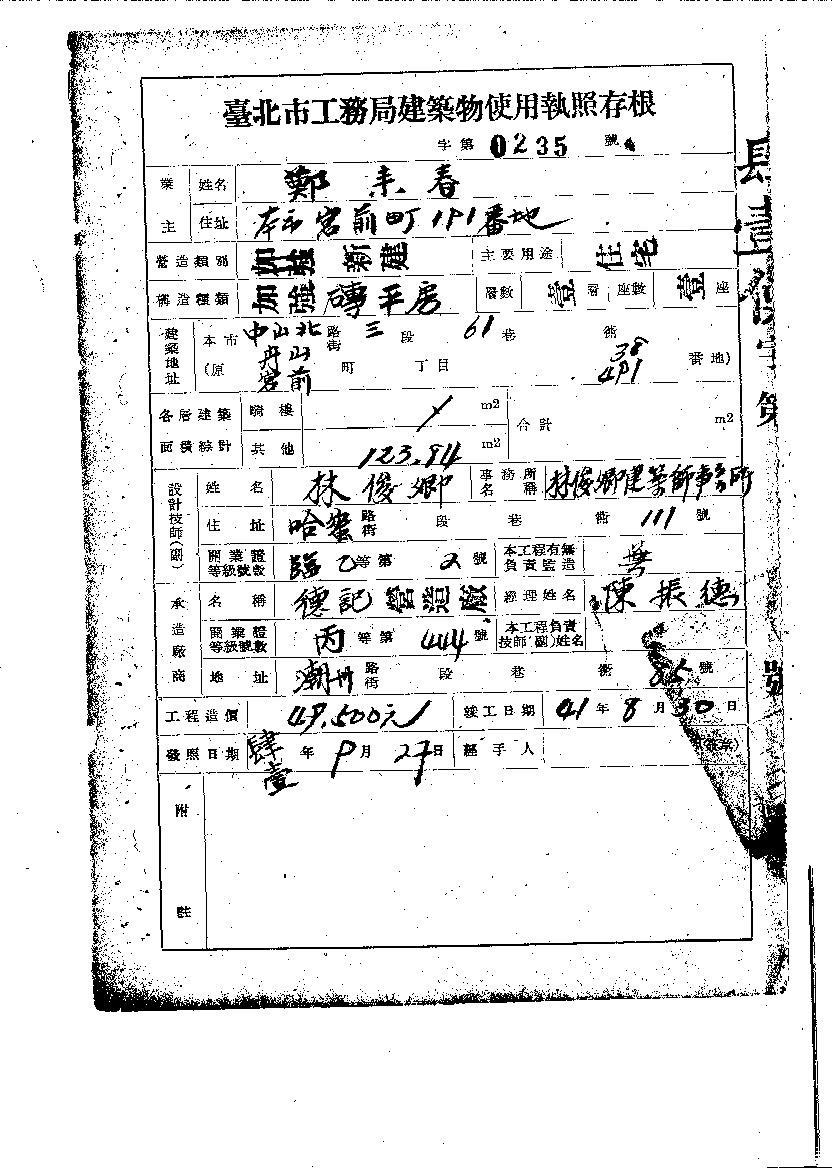 臺北市工務局建築物使用執照存根
字第 0235 號
業主 姓名 鄭未春
住址 本市宮前町191番地
營造類別 新建 主要用途 住宅
構造種類 加強磚平房 層數 壹層 座數 壹座
建築地址 本市 中山北路街 三段 61巷 衖
(原 宮前町 丁目 38 491 番地)
各層建築面積綜計 騎樓 m2 合計 m2
其他 123.94 m2
設計技師(副) 姓名 林俊卿 事務所名稱 林俊卿建築師事務所
住址 哈蜜路街 段 巷 衖 111號
開業證等級號數 臨乙等第2號 本工程有無負責監造 無
承造廠商 名稱 德記營造廠 經理姓名 陳振德
開業證等級號數 丙等第444號 本工程負責技師(副)姓名
地址 潮州路街 段 巷 衖 85號
工程造價 49,500元 竣工日期 41年8月30日
發照日期 肆壹年9月27日 經手人 (簽章)
附註
肆壹使字第 號